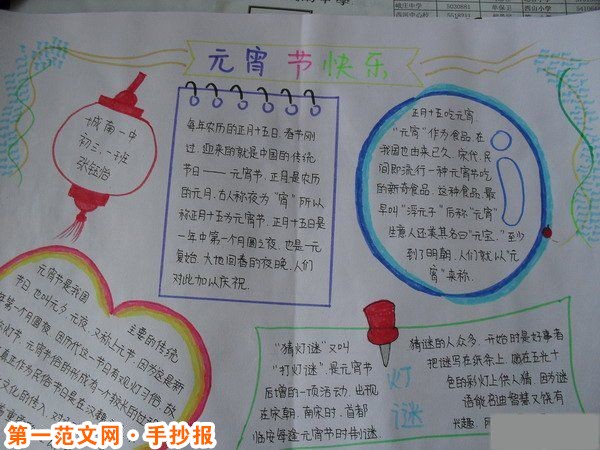 元宵节快乐
城南一中
初三、一班
每年农历的正月十五日,春节刚
过,迎来的就是中国的传统
节日——元宵节,正月是农历
的元月,古人称夜为“宵”所以
称正月十五为元宵节,正月十五日是
一年中第一个月圆之夜,也是一元
复始,大地回春的夜晚,人们
对此加以庆祝.
正月十五吃元宵.
“元宵”作为食品,在
我国也由来已久,宋代,民
间即流行一种元宵节吃
的新奇食品,这种食品,最
早叫“浮元子”后称“元宵”
生意人还美其名曰“元宝.”至少
到了明朝,人们就以“元
宵”来称.
元宵节是我国
主要的传统
节日,也叫元夕,元夜,又称上元节,因为这是新
年第一个月圆夜,因历代这一节日有观灯习俗,故
灯节,元宵节俗的形成有一个较长的过
“猜灯谜”又叫
“打灯谜”,是元宵节
后增的一项活动,出现
在宋朝,南宋时,首都
临安每逢元宵节时制谜,
灯
谜
猜谜的人众多,开始时是好事者
把谜写在纸条上,贴在五光十
色的彩灯上供人猜,因为谜
语能启迪智慧又饶有
兴趣,
第一范文网·手抄报